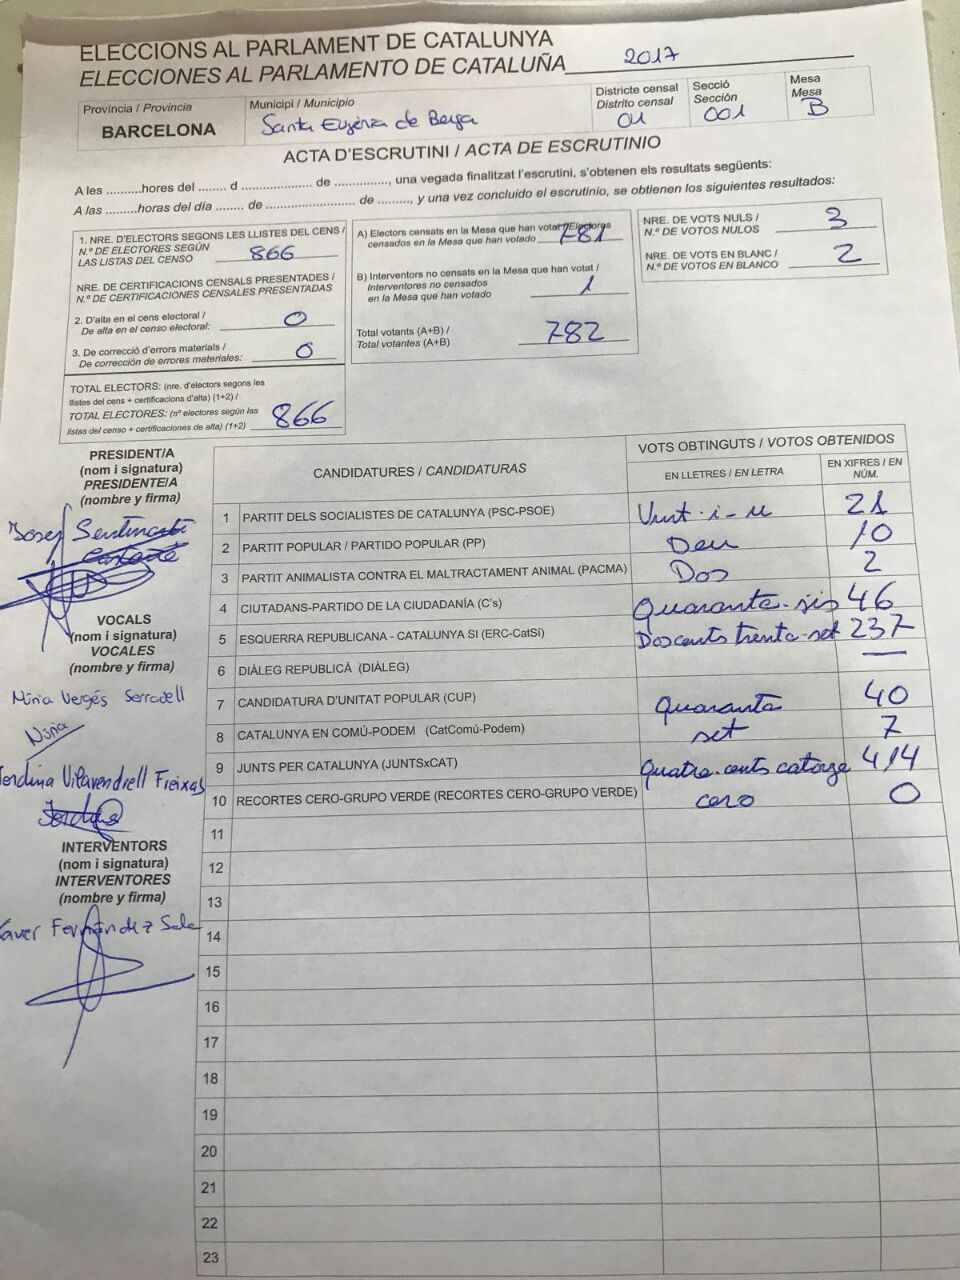 ELECCIONS AL PARLAMENT DE CATALUNYA
ELECCIONES AL PARLAMENTO DE CATALUÑA 2017
Província / Provincia
BARCELONA
Municipi / Municipio
Santa Eugènia de Berga
Districte censal
Distrito censal
01
Secció
Sección
001
Mesa
Mesa
B
ACTA D'ESCRUTINI / ACTA DE ESCRUTINIO
A les ..........hores del ........ d ..................... de ................, una vegada finalitzat l'escrutini, s'obtenen els resultats següents:
A las .........horas del día ........ de .......................... de ........., y una vez concluido el escrutinio, se obtienen los siguientes resultados:
1. NRE. D'ELECTORS SEGONS LES LLISTES DEL CENS /
N.º DE ELECTORES SEGÚN
LAS LISTAS DEL CENSO 866
NRE. DE CERTIFICACIONS CENSALS PRESENTADES /
N.º DE CERTIFICACIONES CENSALES PRESENTADAS
2. D'alta en el cens electoral /
De alta en el censo electoral: 0
3. De correcció d'errors materials /
De corrección de errores materiales: 0
TOTAL ELECTORS: (nre. d'electors segons les
llistes del cens + certificacions d'alta) (1+2) /
TOTAL ELECTORES: (nº electores según las
listas del censo + certificaciones de alta) (1+2) 866
A) Electors censats en la Mesa que han votat / Electores
censados en la Mesa que han votado 781
B) Interventors no censats en la Mesa que han votat /
Interventores no censados
en la Mesa que han votado 1
Total votants (A+B) /
Total votantes (A+B) 782
NRE. DE VOTS NULS /
N.º DE VOTOS NULOS 3
NRE. DE VOTS EN BLANC /
N.º DE VOTOS EN BLANCO 2
PRESIDENT/A
(nom i signatura)
PRESIDENTE/A
(nombre y firma)
Josep
VOCALS
(nom i signatura)
VOCALES
(nombre y firma)
Núria Vergés Serradell
Núria
Jordina Vilavendrell Freixas
INTERVENTORS
(nom i signatura)
INTERVENTORES
(nombre y firma)
Xavier Fernández Sala
CANDIDATURES / CANDIDATURAS
VOTS OBTINGUTS / VOTOS OBTENIDOS
EN LLETRES / EN LETRA
EN XIFRES / EN
NÚM.
1 PARTIT DELS SOCIALISTES DE CATALUNYA (PSC-PSOE) Vint-i-u 21
2 PARTIT POPULAR / PARTIDO POPULAR (PP) Deu 10
3 PARTIT ANIMALISTA CONTRA EL MALTRACTAMENT ANIMAL (PACMA) Dos 2
4 CIUTADANS-PARTIDO DE LA CIUDADANÍA (C's) Quaranta-sis 46
5 ESQUERRA REPUBLICANA - CATALUNYA SI (ERC-CatSí) Doscents trenta-set 237
6 DIÀLEG REPUBLICÀ (DIÀLEG) —
7 CANDIDATURA D'UNITAT POPULAR (CUP) Quaranta 40
8 CATALUNYA EN COMÚ-PODEM (CatComú-Podem) set 7
9 JUNTS PER CATALUNYA (JUNTSxCAT) Quatre-cents catorze 414
10 RECORTES CERO-GRUPO VERDE (RECORTES CERO-GRUPO VERDE) cero 0
11
12
13
14
15
16
17
18
19
20
21
22
23